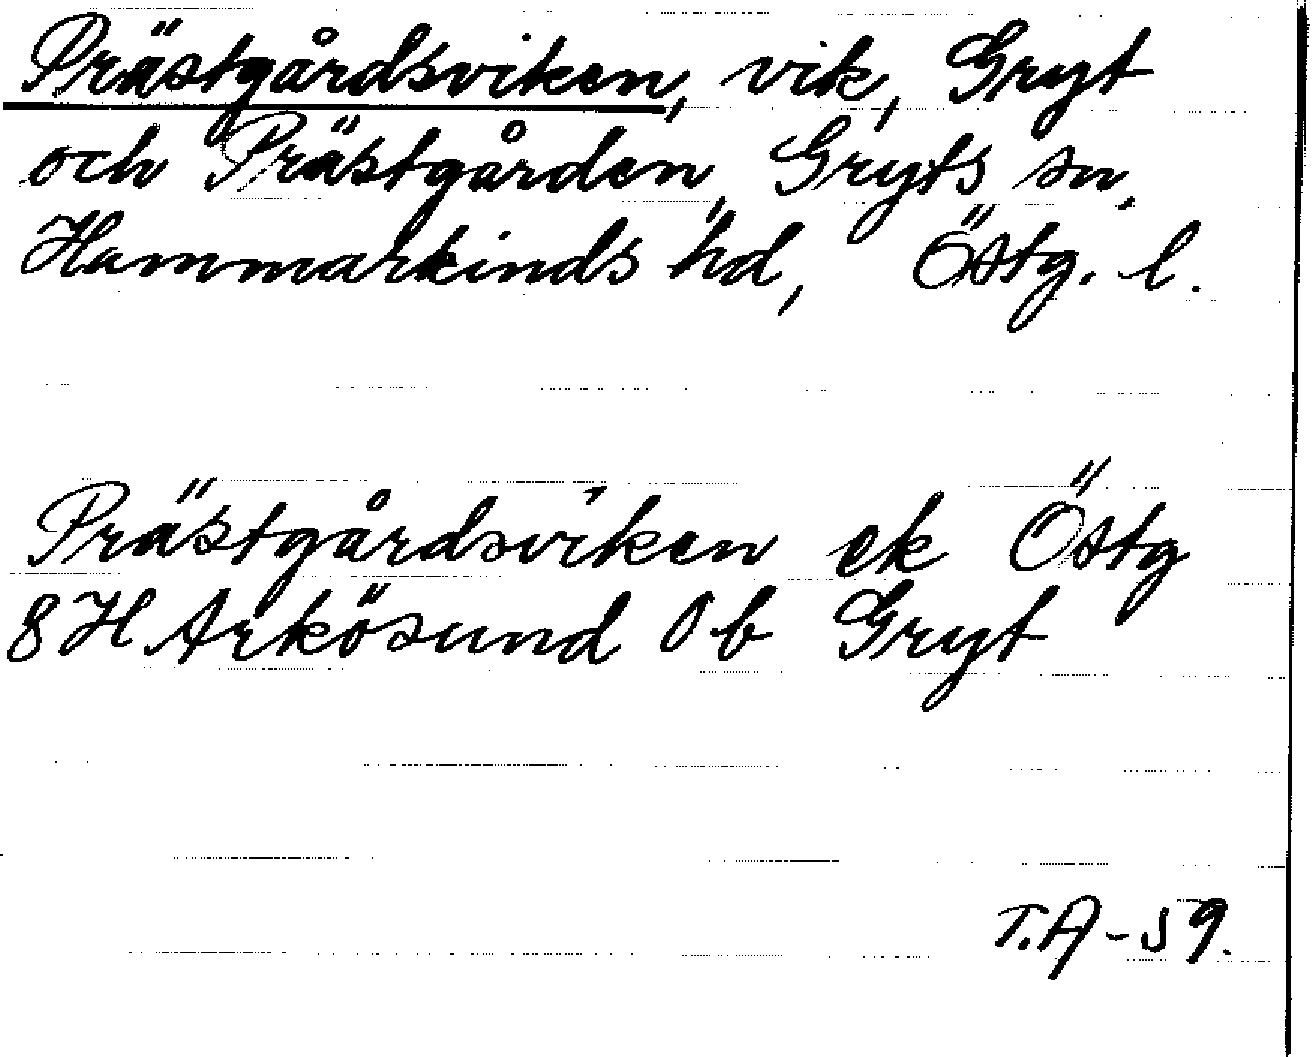 Prästgårdsviken, vik, Gryt
och Prästgården, Gryts sn,
Hammarkinds hd, Östg. l.
Prästgårdsviken ek Östg
8H Arkösund 0b Gryt
T.A-59.